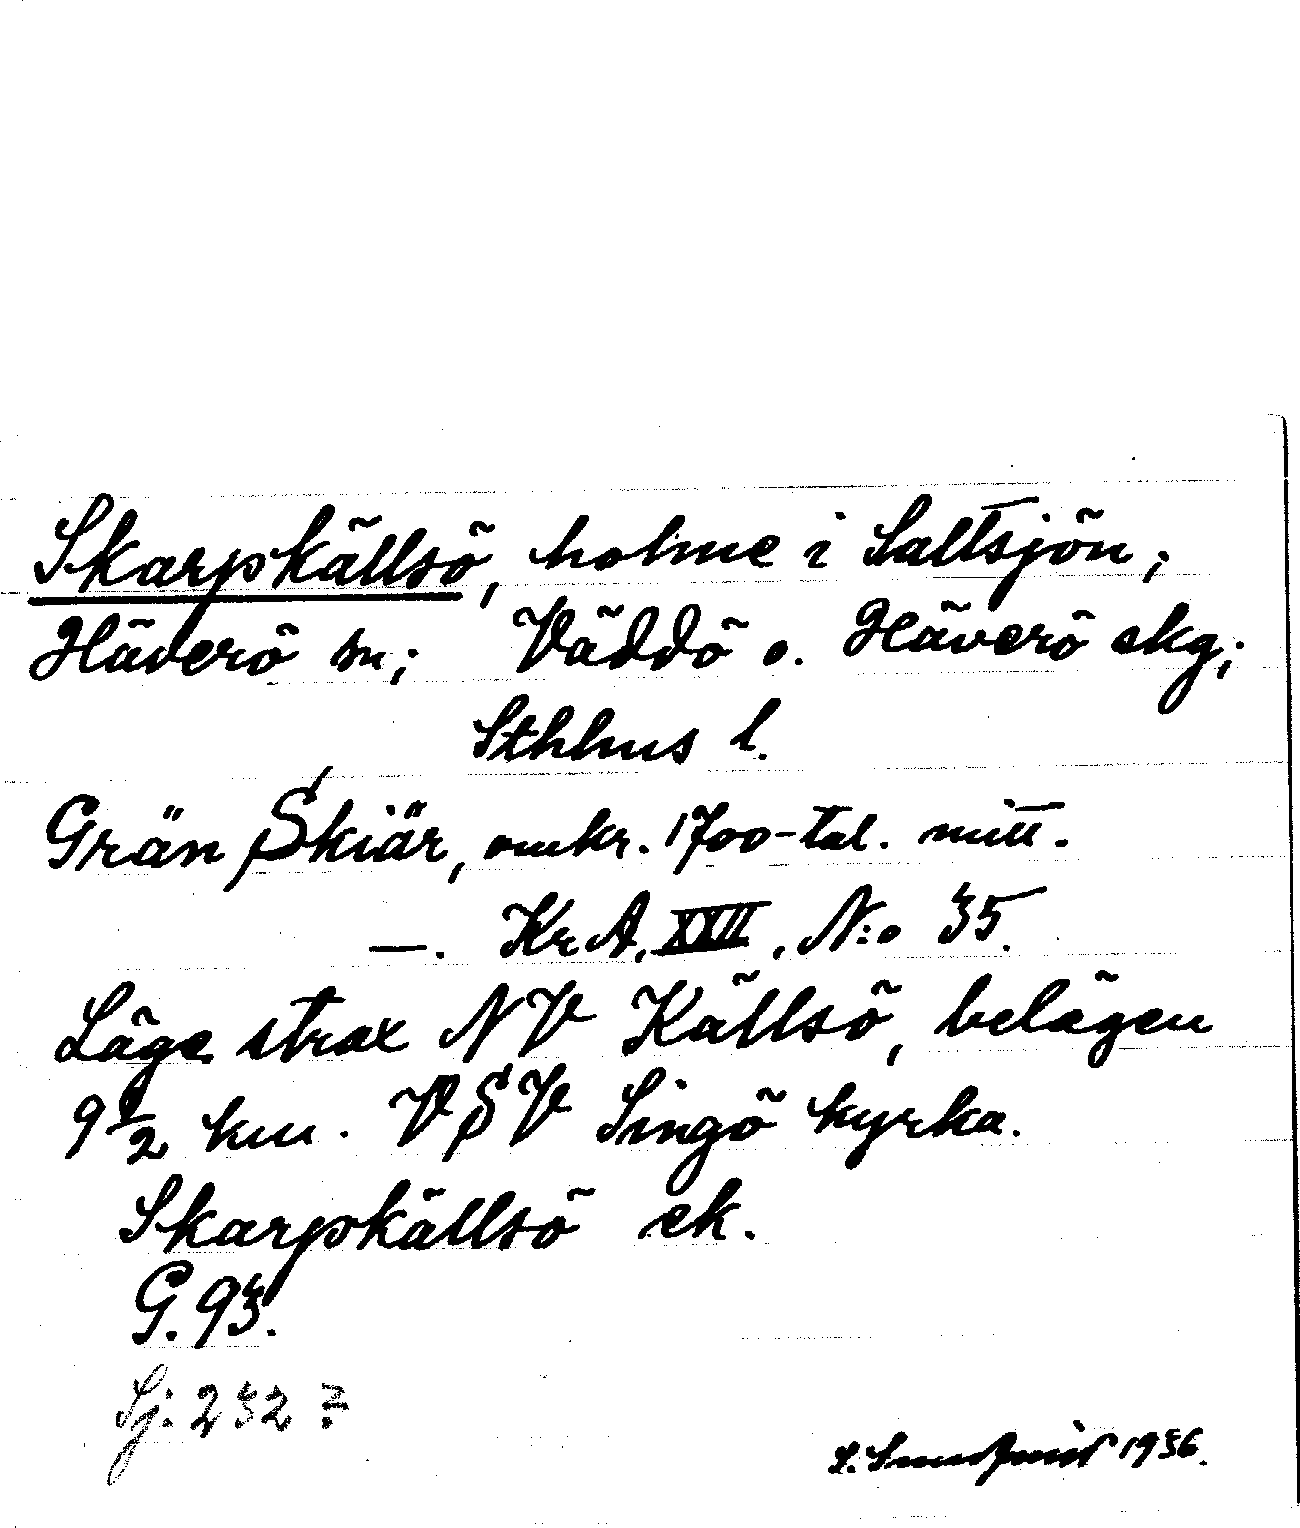 Skarpkällsö, holme i Saltsjön;
Häverö sn; Väddö o. Häverö skg;
Sthlms l.
Grän Skiär, omkr. 1700-tal. mitt.
—. Kr.A. XXII, N:o 35.
Läge strax NV Källsö, belägen
9 1/2 km. VSV Singö kyrka.
Skarpkällsö ek.
G. 93.
Sj: 232
1936.